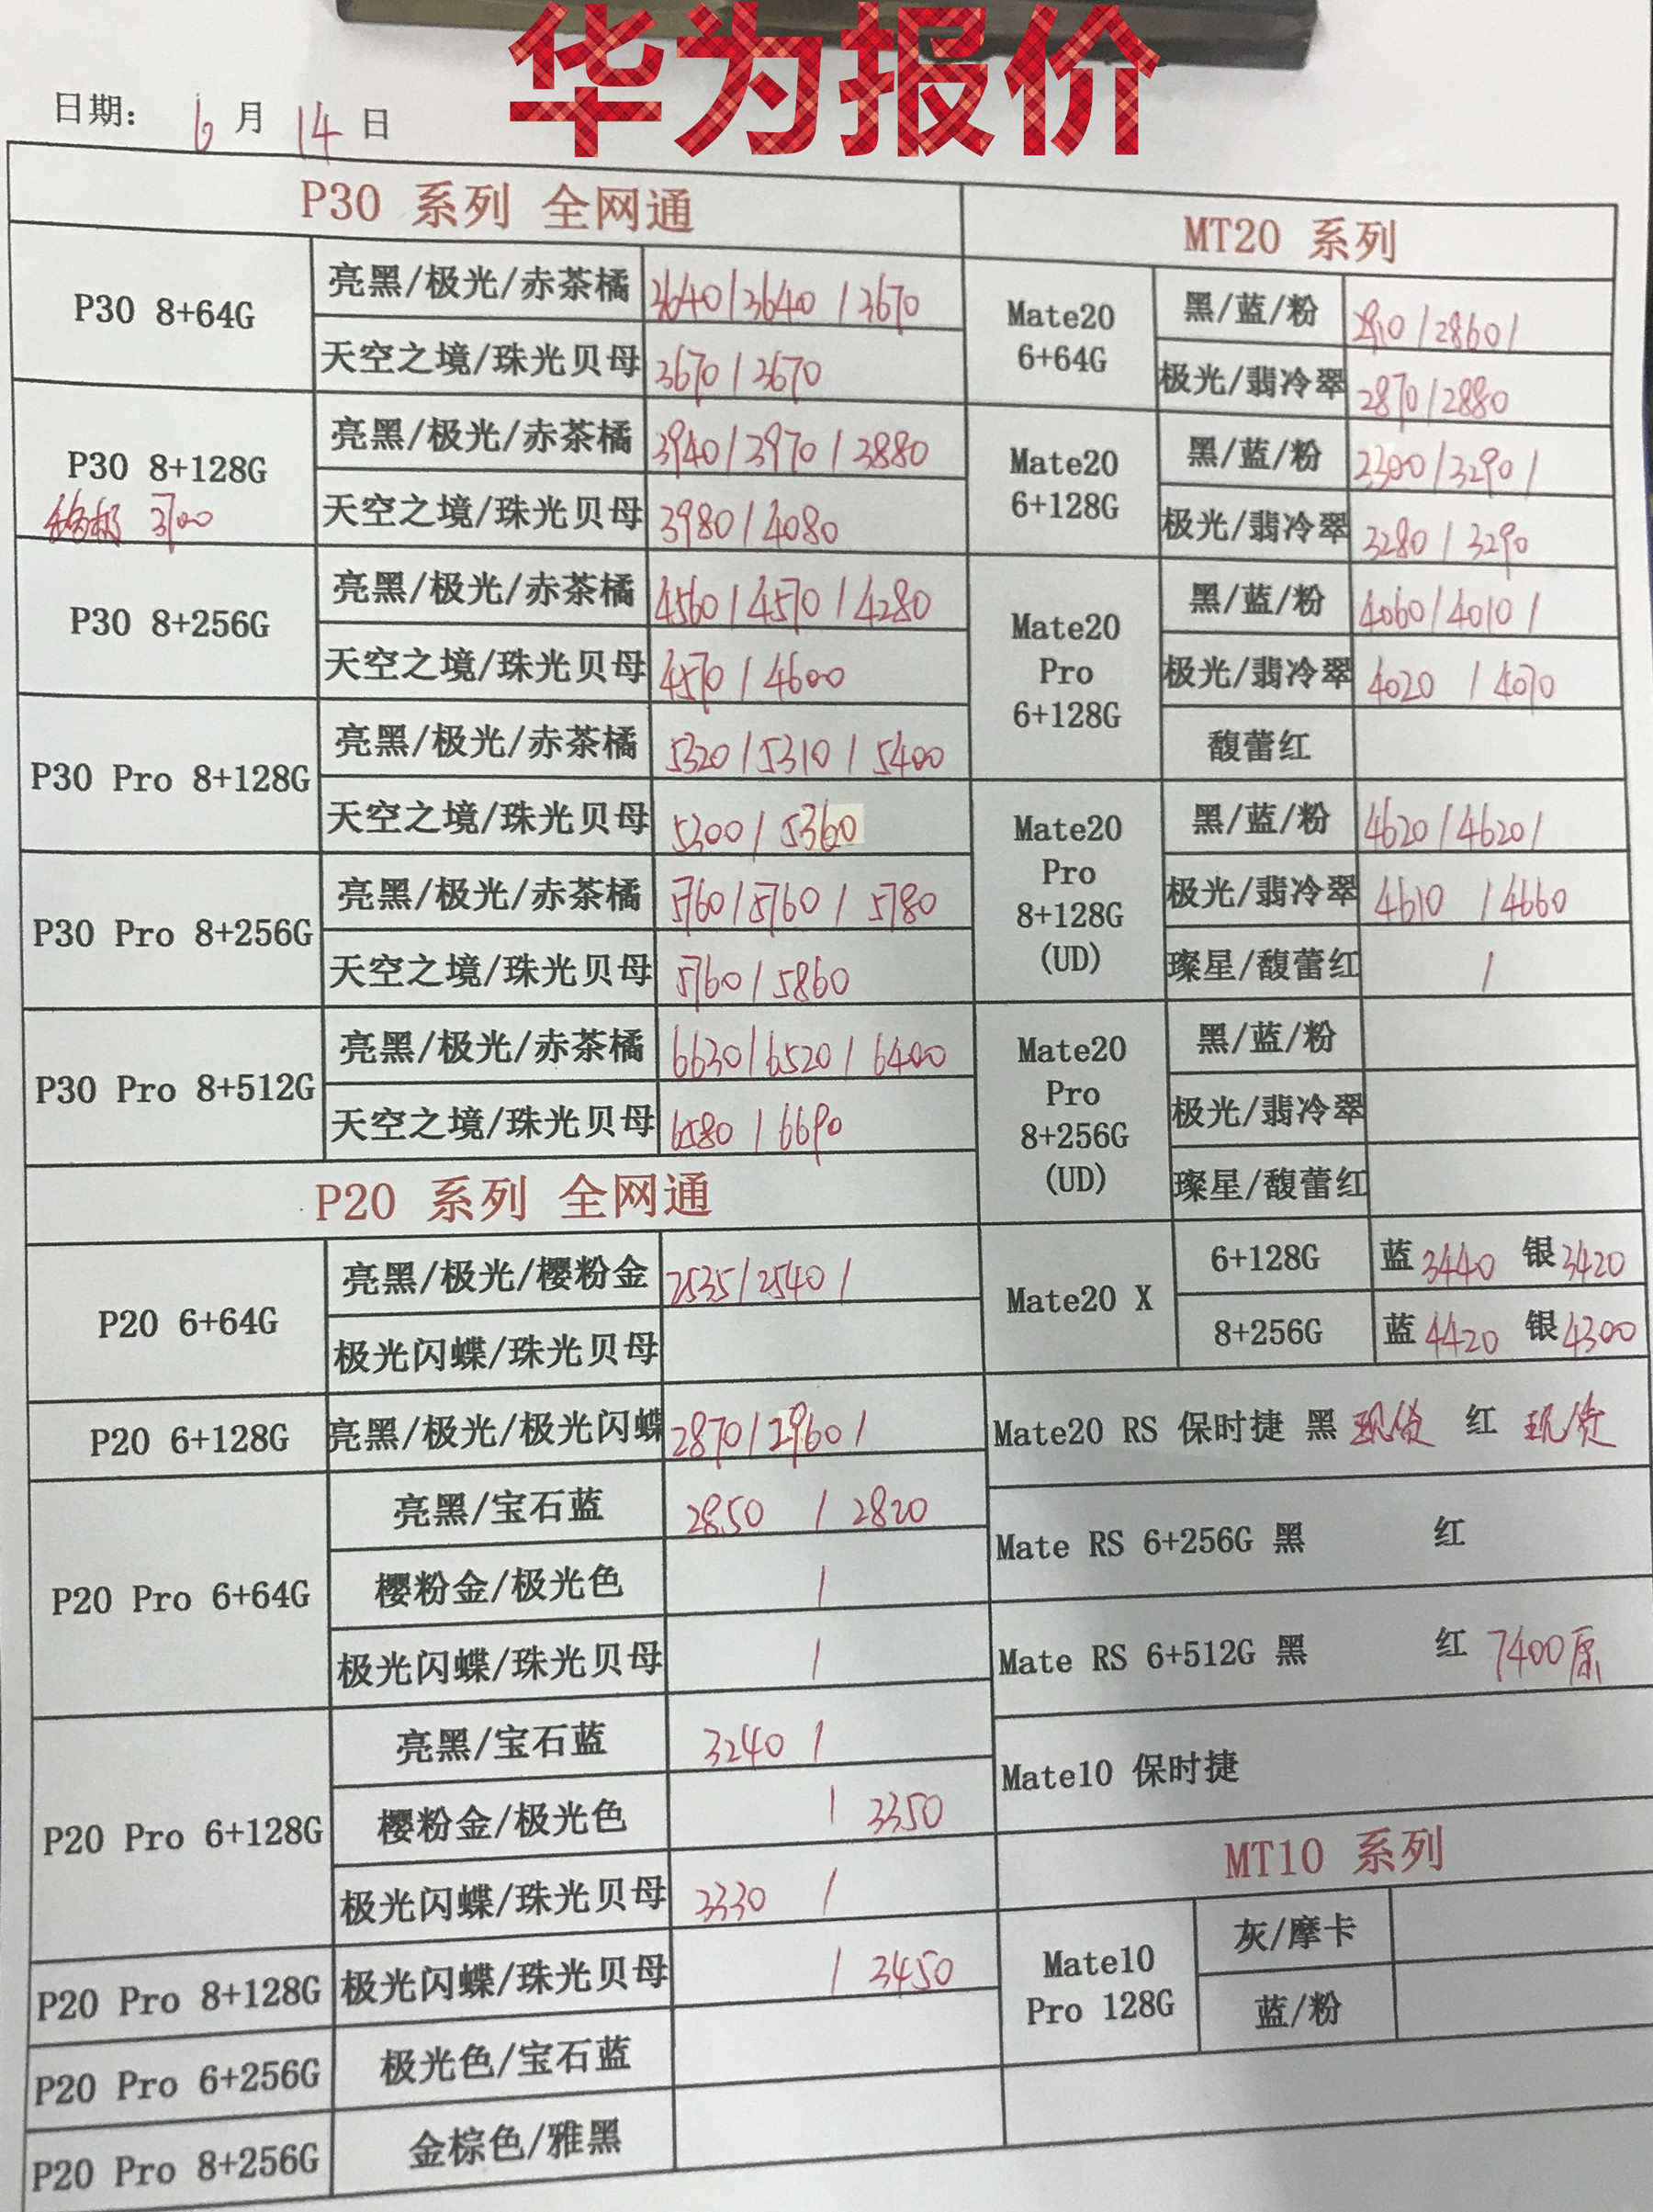 华为报价
日期： 6 月 14 日
P30 系列 全网通
P30 8+64G
亮黑/极光/赤茶橘 3640/3640/3670
天空之境/珠光贝母 3670/3670
P30 8+128G
3700
亮黑/极光/赤茶橘 3940/3970/3880
天空之境/珠光贝母 3980/4080
P30 8+256G
亮黑/极光/赤茶橘 4560/4570/4280
天空之境/珠光贝母 4570/4600
P30 Pro 8+128G
亮黑/极光/赤茶橘 5320/5310/5400
天空之境/珠光贝母 5300/5360
P30 Pro 8+256G
亮黑/极光/赤茶橘 5760/5760/5780
天空之境/珠光贝母 5760/5860
P30 Pro 8+512G
亮黑/极光/赤茶橘 6630/6520/6400
天空之境/珠光贝母 6580/6690
P20 系列 全网通
P20 6+64G
亮黑/极光/樱粉金 2535/2540/
极光闪蝶/珠光贝母
P20 6+128G
亮黑/极光/极光闪蝶 2870/2960/
P20 Pro 6+64G
亮黑/宝石蓝 2850 / 2820
樱粉金/极光色 /
极光闪蝶/珠光贝母 /
P20 Pro 6+128G
亮黑/宝石蓝 3240 /
樱粉金/极光色 / 3350
极光闪蝶/珠光贝母 3330 /
P20 Pro 8+128G
极光闪蝶/珠光贝母 / 3450
P20 Pro 6+256G
极光色/宝石蓝
P20 Pro 8+256G
金棕色/雅黑
MT20 系列
Mate20
6+64G
黑/蓝/粉 /2860/
极光/翡冷翠 2870/2880
Mate20
6+128G
黑/蓝/粉 3300/3290/
极光/翡冷翠 3280/3290
Mate20
Pro
6+128G
黑/蓝/粉 4060/4010/
极光/翡冷翠 4020 / 4070
馥蕾红
Mate20
Pro
8+128G
(UD)
黑/蓝/粉 4620/4620/
极光/翡冷翠 4610 /4660
璨星/馥蕾红 /
Mate20
Pro
8+256G
(UD)
黑/蓝/粉
极光/翡冷翠
璨星/馥蕾红
Mate20 X
6+128G 蓝 3440 银 3420
8+256G 蓝 4420 银 4300
Mate20 RS 保时捷 黑 现货 红 现货
Mate RS 6+256G 黑 红
Mate RS 6+512G 黑 红 7400原
Mate10 保时捷
MT10 系列
Mate10
Pro 128G
灰/摩卡
蓝/粉